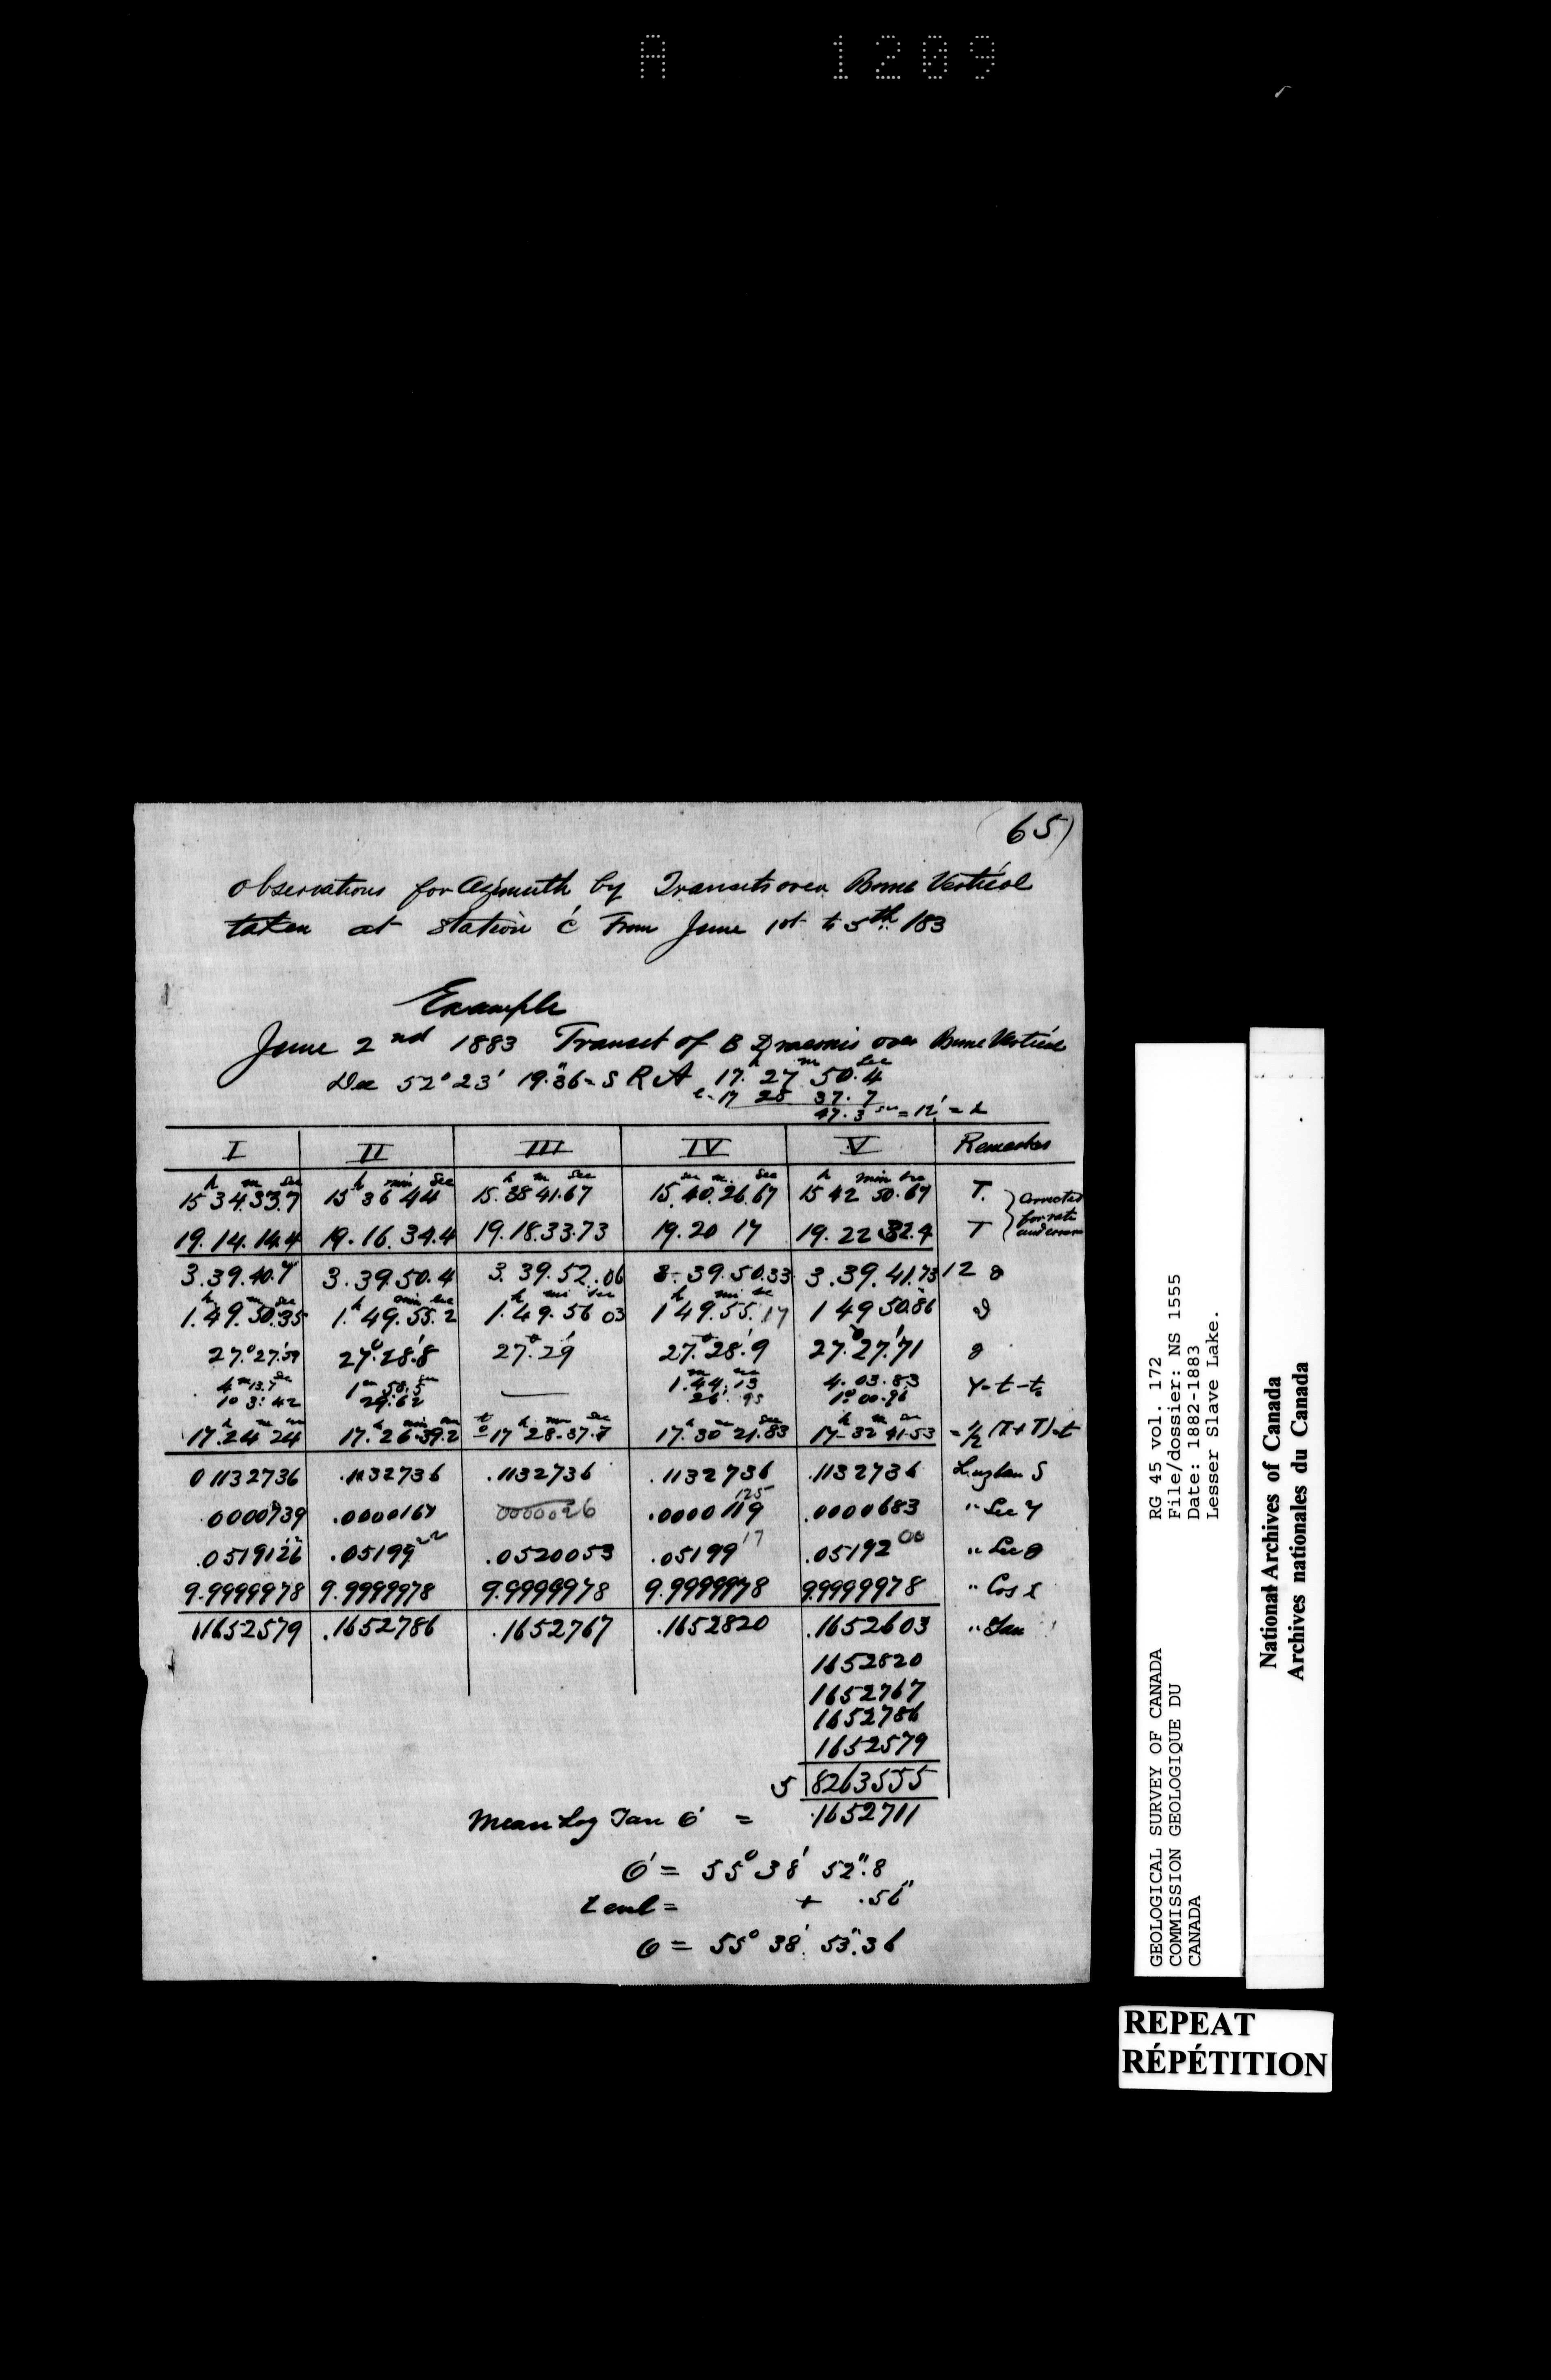 A 1209
(65)
Observations for Azimuth by Transits over Prime Vertical
taken at Station C from June 1st to 5th 1883
Example
June 2nd 1883 Transit of B Draconis over Prime Vertical
Dec 52° 23' 19".36 = S R A 17h 27m 50.4sec
t. 17 28 37.7
47.3sec = 12' = x
I II III IV V Remarks
h m sec h min sec h m sec m sec h min sec
15 34.33.7 15 36 44 15.38 41.67 15.40.26.67 15 42 50.67 T. } Corrected
19.14.14.4 19.16.34.4 19.18.33.73 19.20 17 19.22 32.4 T } for rate and error
3.39.40.7 3.39.50.4 3.39.52.06 3.39.50.33 3.39.41.73 12 θ
h m sec h min sec h mi sec h mi se
1.49.50.35 1.49.55.2 1.49.56 03 1 49.55.17 1 49 50.86 θ
27.°27.'59 27.°28.'8 27.°29' 27.°28.9 27.°27.'71 θ
4m 13.7sec 1m 58.5sec — 1.m44.13 4.03.83 Y = t - t₀
1° 3'.42 29.62 26.'03 1°.00.96
17.h24m 24 17.h26min39.2 t₀ = 17h 28m 37.7sec 17.h30m21.83sec 17h 32m 41.53 = ½ (T+T) = t
0 1132736 .1132736 .1132736 .1132736 .1132736 Log tan S
125
.0000739 .0000167 0000026 .0000119 .0000683 " Sec Y
.0519126 .0519922 .0520053 .0519917 .0519200 " Sec θ
9.9999978 9.9999978 9.9999978 9.9999978 9.9999978 " Cos x
.1652579 .1652786 .1652767 .1652820 .1652603 " Tan
1652820
1652767
1652786
1652579
5 8263555
Mean Log Tan Ó = .1652711
Ó = 55° 38' 52".8
+ .56"
O = 55° 38' 53".36
GEOLOGICAL SURVEY OF CANADA
COMMISSION GEOLOGIQUE DU
CANADA
RG 45 vol. 172
File/dossier: NS 1555
Date: 1882-1883
Lesser Slave Lake.
National Archives of Canada
Archives nationales du Canada
REPEAT
RÉPÉTITION